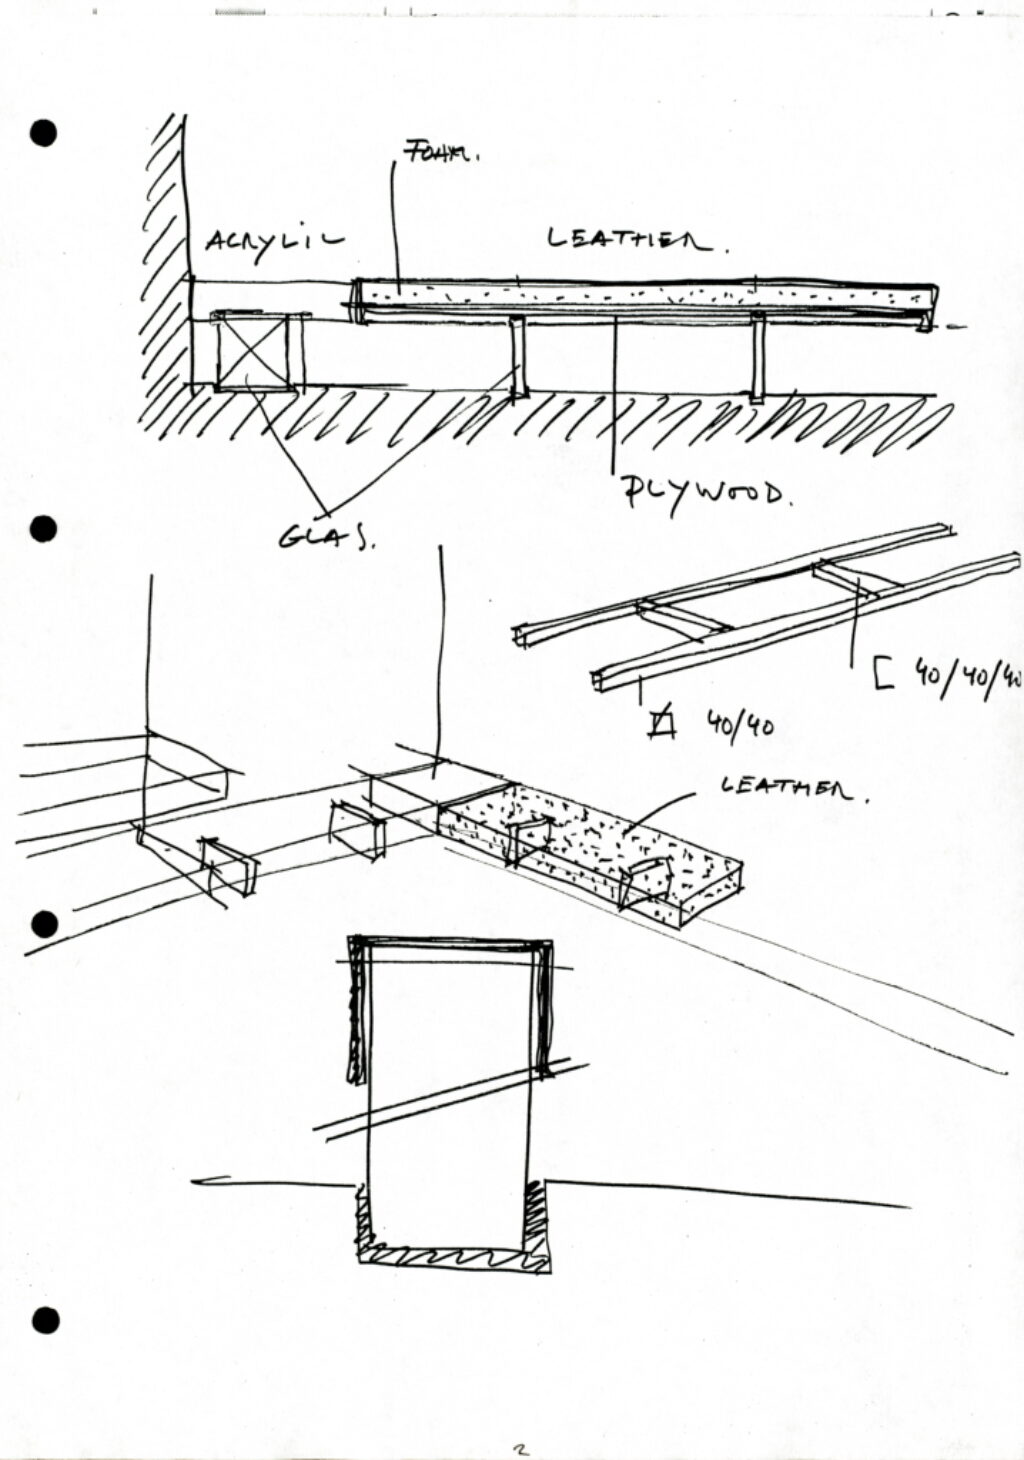 FOAM.
ACRYLIC
LEATHER.
PLYWOOD.
GLAS.
[ 40/40/40
40/40
LEATHER.
2